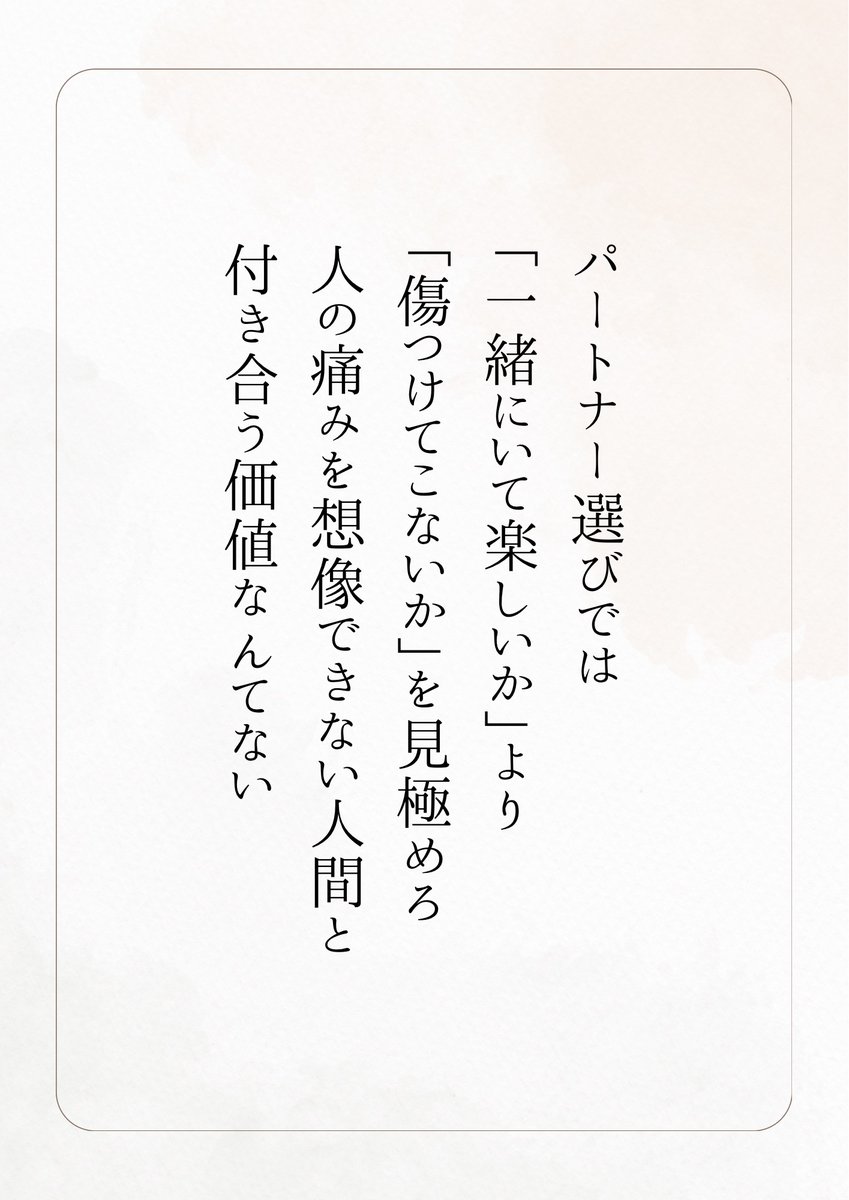 パートナー選びでは
「一緒にいて楽しいか」より
「傷つけてこないか」を見極めろ
人の痛みを想像できない人間と
付き合う価値なんてない